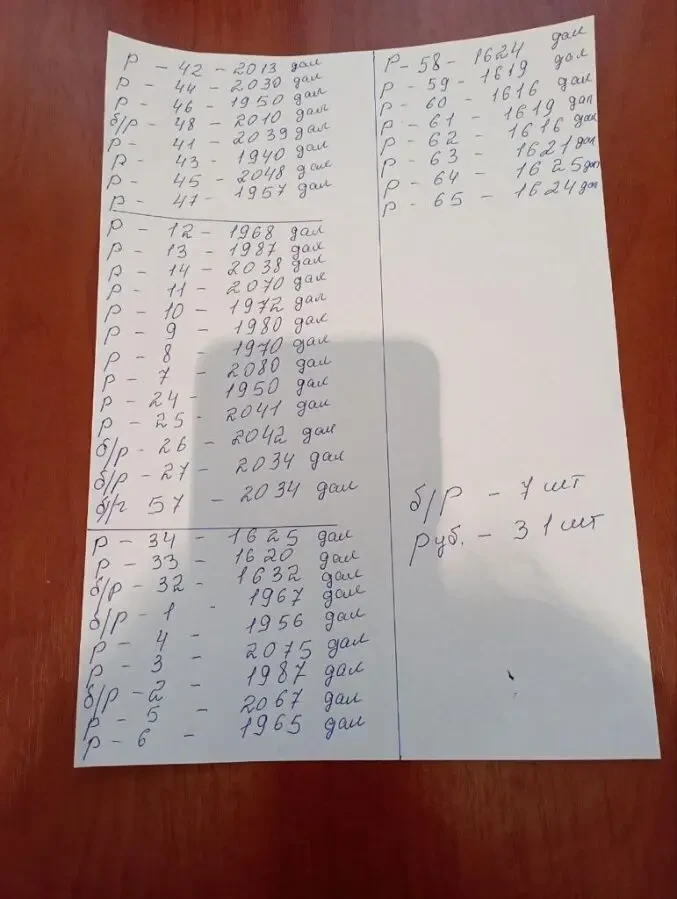 р - 42 - 2013 дал
р - 44 - 2030 дал
р - 46 - 1950 дал
б/р - 48 - 2010 дал
р - 41 - 2039 дал
р - 43 - 1940 дал
р - 45 - 2048 дал
р - 47 - 1957 дал
р - 12 - 1968 дал
р - 13 - 1987 дал
р - 14 - 2038 дал
р - 11 - 2070 дал
р - 10 - 1972 дал
р - 9 - 1980 дал
р - 8 - 1970 дал
р - 7 - 2080 дал
р - 24 - 1950 дал
р - 25 - 2041 дал
б/р - 26 - 2042 дал
б/р - 27 - 2034 дал
б/р 57 - 2034 дал
р - 34 - 1625 дал
р - 33 - 1620 дал
б/р - 32 - 1632 дал
б/р - 1 - 1967 дал
р - 4 - 1956 дал
р - 3 - 2075 дал
б/р - 2 - 1987 дал
р - 5 - 2067 дал
р - 6 - 1965 дал
р - 58 - 1624 дал
р - 59 - 1619 дал
р - 60 - 1616 дал
р - 61 - 1619 дал
р - 62 - 1616 дал
р - 63 - 1621 дал
р - 64 - 1625 дал
р - 65 - 1624 дал
б/р - 7 шт
руб. - 31 шт